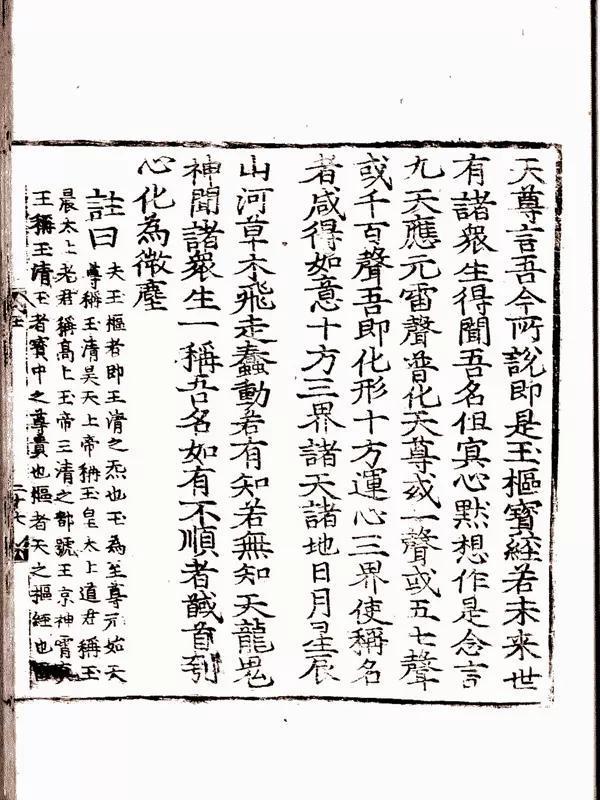 天尊言吾今所說即是玉樞寶經若未来世
有諸衆生得聞吾名但冥心黙想作是念言
九天應元雷聲普化天尊或一聲或五七聲
或千百聲吾即化形十方運心三界使稱名
者咸得如意十方三界諸天諸地日月星辰
山河草木飛走蠢動若有知若無知天龍鬼
神聞諸衆生一稱吾名如有不順者馘首刳
心化為微塵
註曰
夫玉樞者即玉清之炁也玉為至尊元始天
尊稱玉清昊天上帝稱玉皇太上道君稱玉
晨太上老君稱髙上玉帝三清之都號玉京神霄
王稱玉清玉者寳中之尊貴也樞者天之樞經也
二十六